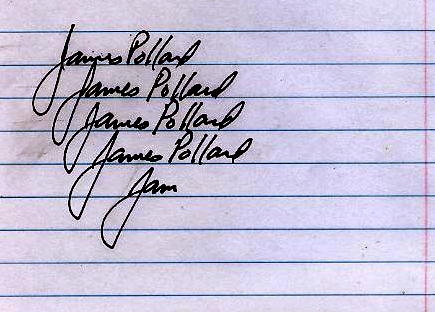 James Pollard
James Pollard
James Pollard
James Pollard
Jam